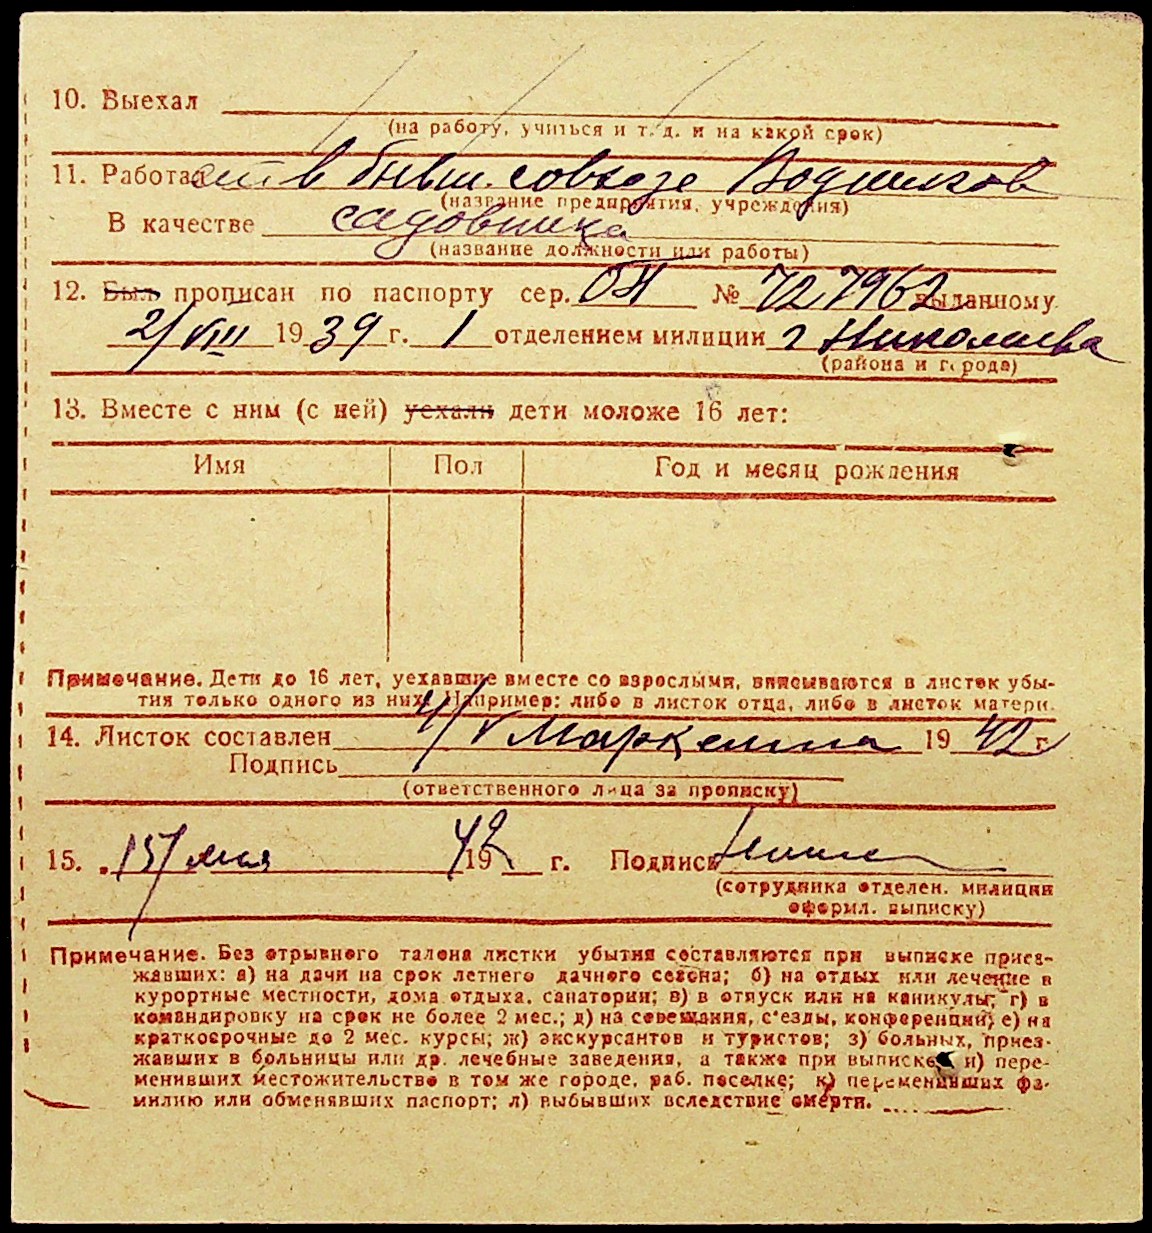 10. Выехал
(на работу, учиться и т. д. и на какой срок)
11. Работает в бывш. совхозе
(название предприятия, учреждения)
В качестве садовника
(название должности или работы)
12. Был прописан по паспорту сер. ОН № 727962 выданному
2/VIII 1939 г. 1 отделением милиции г Николаева
(района и города)
13. Вместе с ним (с ней) уехали дети моложе 16 лет:
Имя Пол Год и месяц рождения
Примечание. Дети до 16 лет, уехавшие вместе со взрослыми, вписываются в листок убы-
тия только одного из них. Например: либо в листок отца, либо в листок матери.
14. Листок составлен 4/V 1942 г.
Подпись
(ответственного лица за прописку)
15. 15/мая 1942 г. Подпись
(сотрудника отделен. милиции
оформл. выписку)
Примечание. Без отрывного талона листки убытия составляются при выписке приез-
жавших: а) на дачи на срок летнего дачного сезона; б) на отдых или лечение в
курортные местности, дома отдыха, санатории; в) в отпуск или на каникулы; г) в
командировку на срок не более 2 мес.; д) на совещания, с'езды, конференции; е) на
краткосрочные до 2 мес. курсы; ж) экскурсантов и туристов; з) больных, приез-
жавших в больницы или др. лечебные заведения, а также при выписке: и) пере-
менивших местожительство в том же городе, раб. поселке; к) переменивших фа-
милию или обменявших паспорт; л) выбывших вследствие смерти.